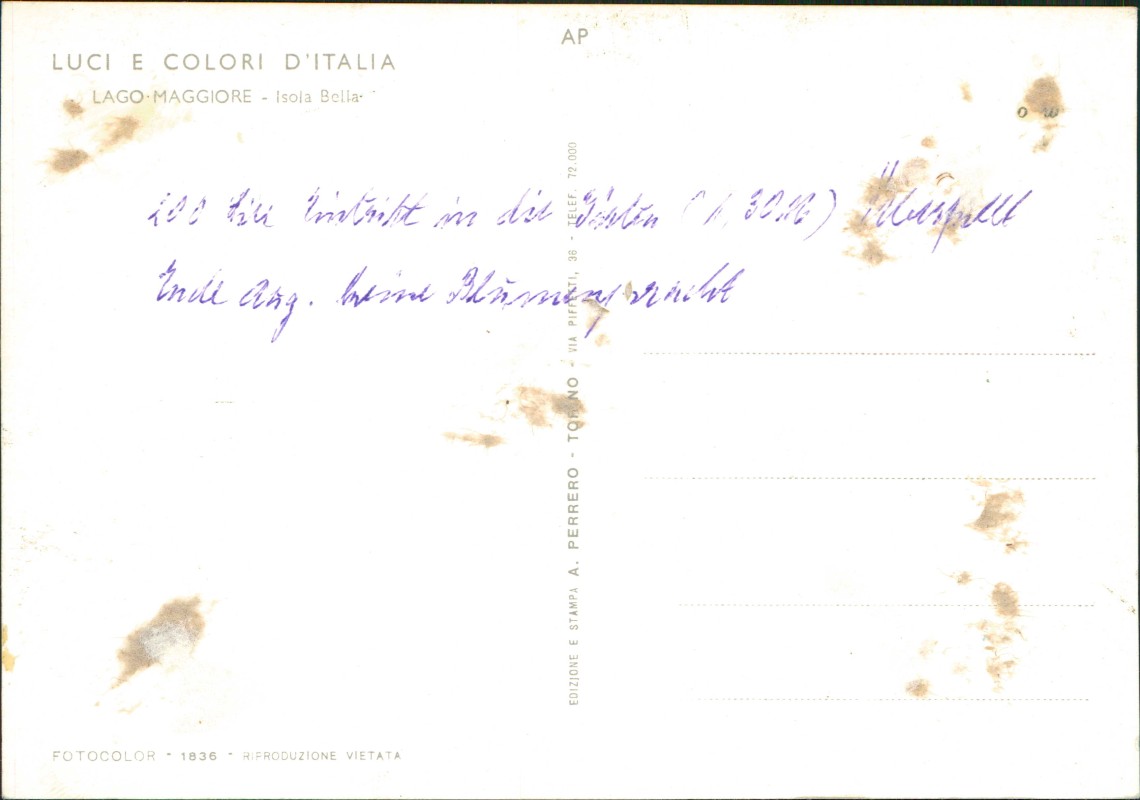 AP
LUCI E COLORI D'ITALIA
LAGO MAGGIORE - Isola Bella
200 Lire Eintritt in die Gärten ( 1,30 M) Überfüllt
Ende Aug. keine Blumenpracht
EDIZIONE E STAMPA A. PERRERO - TORINO - VIA PIFFETTI, 36 - TELEF. 72.000
FOTOCOLOR - 1836 - RIPRODUZIONE VIETATA